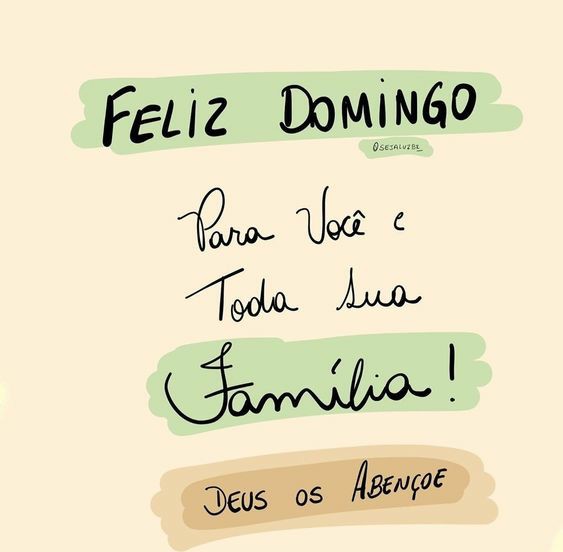 FELIZ DOMINGO
@SEJALUZBR_
Para Você e
Toda sua
Família!
DEUS OS ABENÇOE